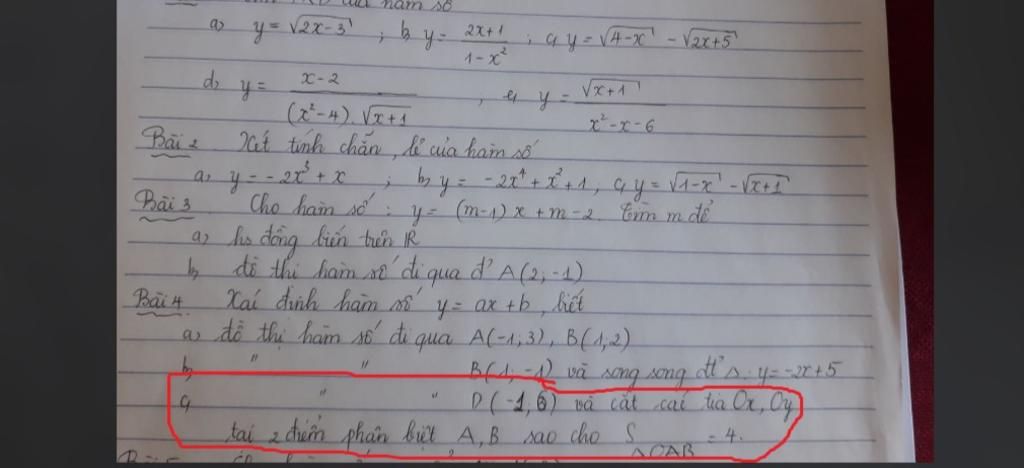 của hàm số
a) y = √(2x-3) ; b) y = (2x+1)/(1-x²) ; c) y = √(4-x) - √(2x+5)
d) y = (x-2)/((x²-4).√(x+1)) ; e) y = √(x+1)/(x²-x-6)
Bài 2 Xét tính chẵn, lẻ của hàm số
a) y = -2x³ + x ; b) y = -2x⁴ + x² + 1, c) y = √(1-x) - √(x+1)
Bài 3 Cho hàm số : y = (m-1)x + m-2. Tìm m để
a) hs đồng biến trên R
b) đồ thị hàm số đi qua đ' A(2;-1)
Bài 4 Xác định hàm số y = ax+b, biết
a) đồ thị hàm số đi qua A(-1;3), B(1;2)
b) " " B(1;-1) và song song đt Δ: y=-2x+5
c) " " D(-1,6) và cắt các tia Ox, Oy
tại 2 điểm phân biệt A, B sao cho S ΔOAB = 4.